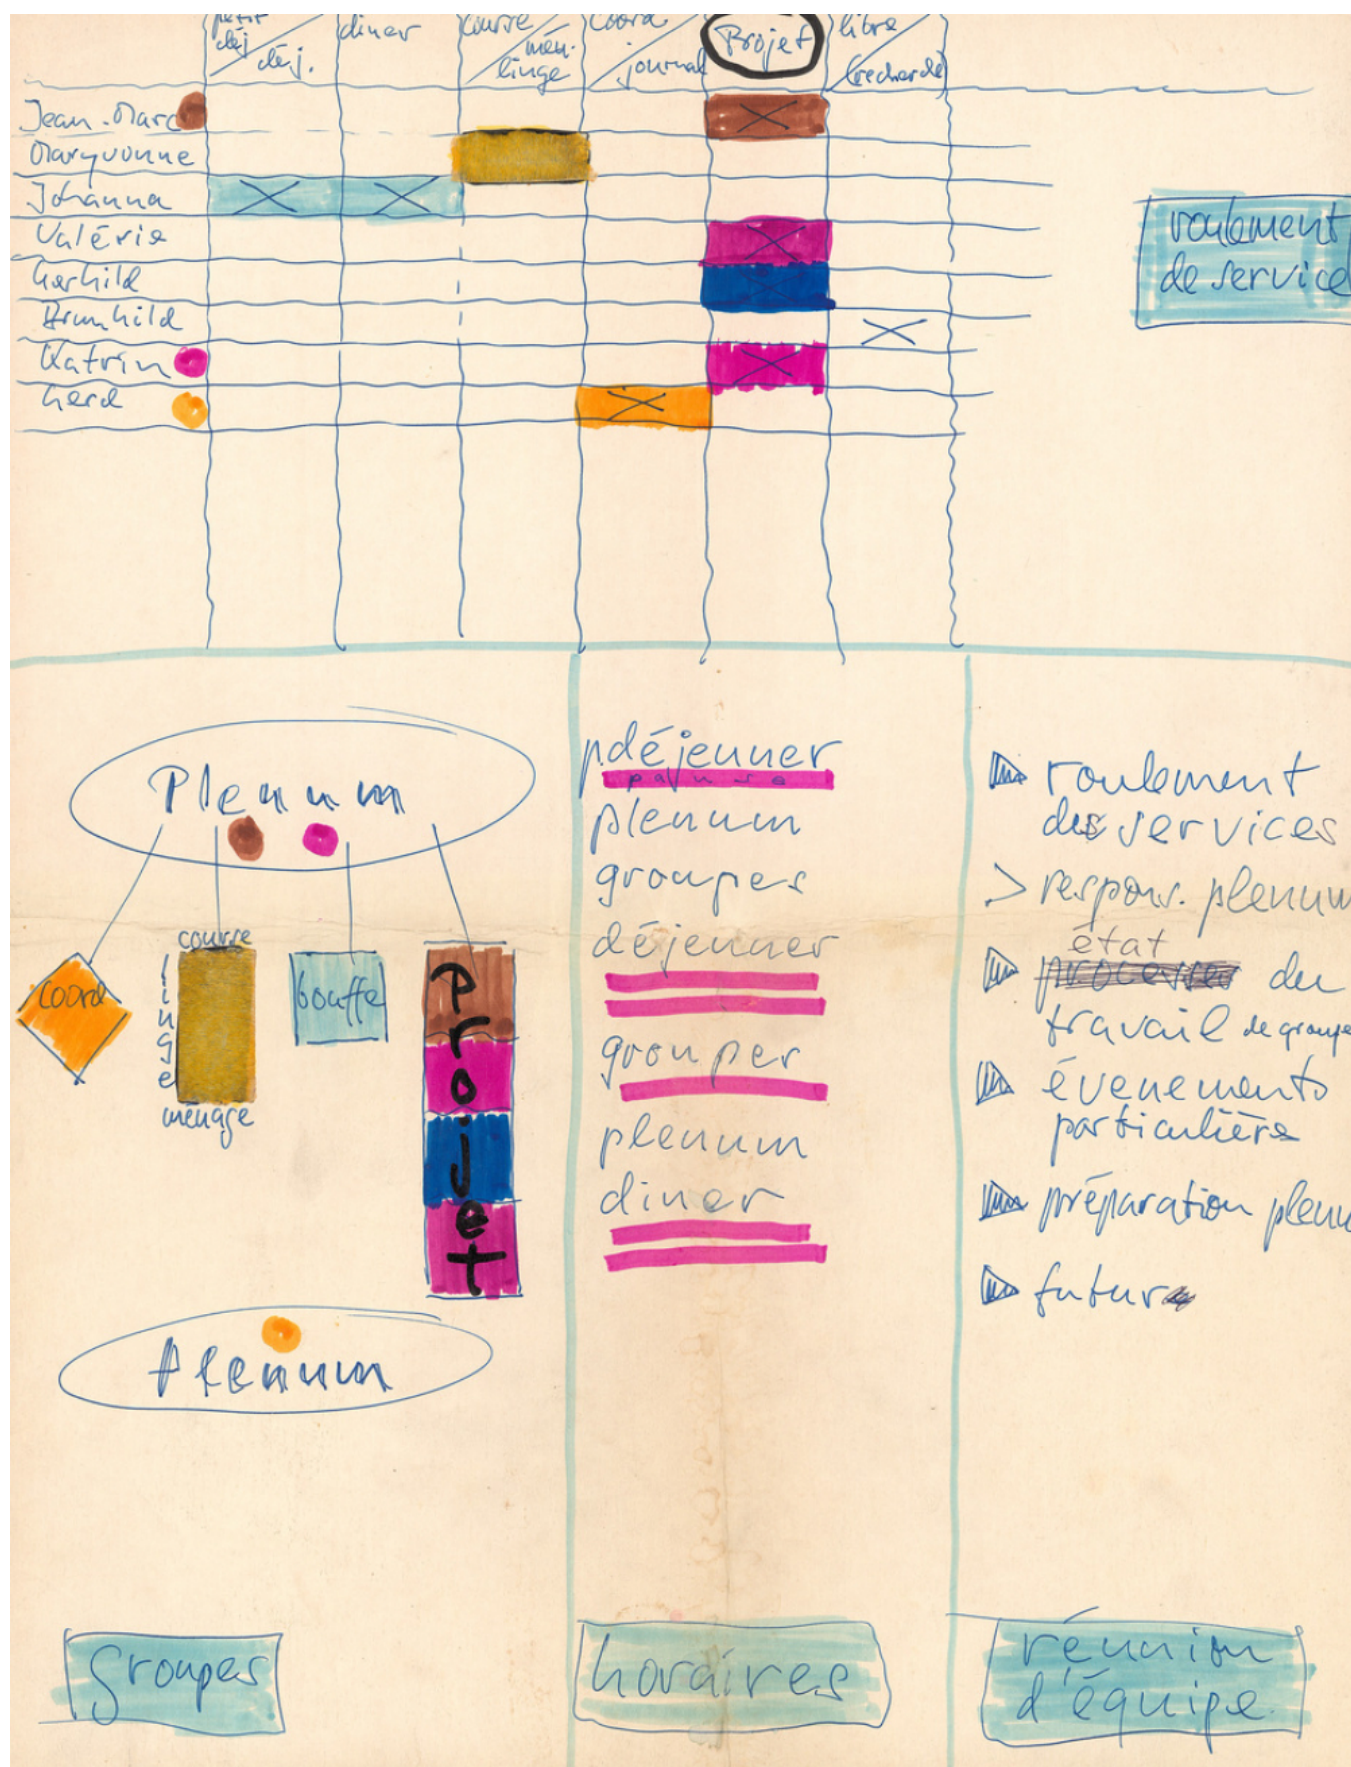 petit
déj
déj.
diner
course
mén.
linge
coord.
journal
Projet
libre
(recherche)
Jean-Marc
Maryvonne
Johanna
Valérie
Gerhild
Brunhild
Katrin
Gerd
roulement
de service
Plenum
coord
course
linge
ménage
bouffe
Projet
Plenum
groupes
pdéjeuner
plenum
groupes
déjeuner
grouper
plenum
diner
horaires
roulement
des services
> respons. plenum
état
du
travail de groupe
évenements
particulière
préparation plenu
futur
réunion
d'équipe